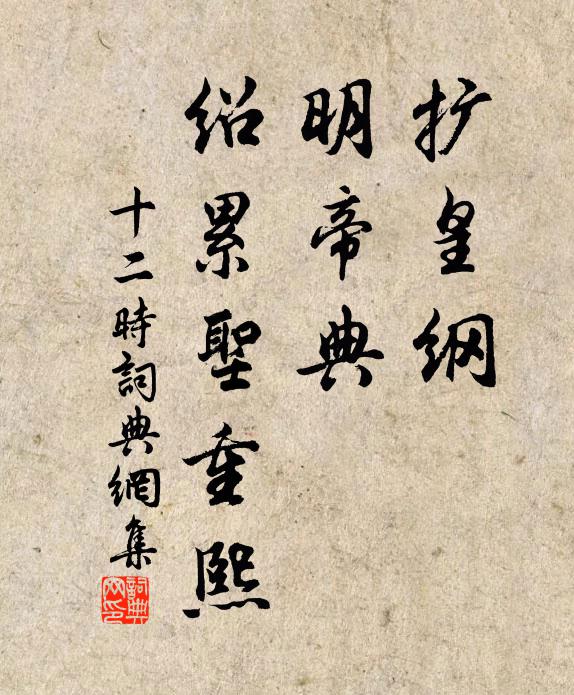 扩皇纲
明帝典
绍累聖重熙
十二時詞典網集
詞典
网印